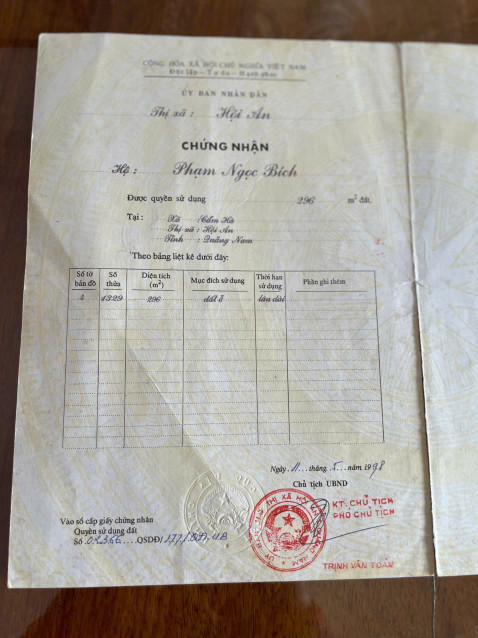 CỘNG HÒA XÃ HỘI CHỦ NGHĨA VIỆT NAM
Độc lập - Tự do - Hạnh phúc
ỦY BAN NHÂN DÂN
Thị xã : Hội An
CHỨNG NHẬN
Hộ : Phạm Ngọc Bích
Được quyền sử dụng 296 m² đất.
Tại : Xã : Cẩm Hà
Thị xã : Hội An
Tỉnh : Quảng Nam
Theo bảng liệt kê dưới đây:
Số tờ bản đồ Số thửa Diện tích (m²) Mục đích sử dụng Thời hạn sử dụng Phần ghi thêm
1329 296 đất ở lâu dài
Ngày 11 tháng 5 năm 1998
Chủ tịch UBND
KT. CHỦ TỊCH
PHÓ CHỦ TỊCH
Vào sổ cấp giấy chứng nhận
Quyền sử dụng đất
Số QSDĐ/
TRỊNH VĂN TOẢN